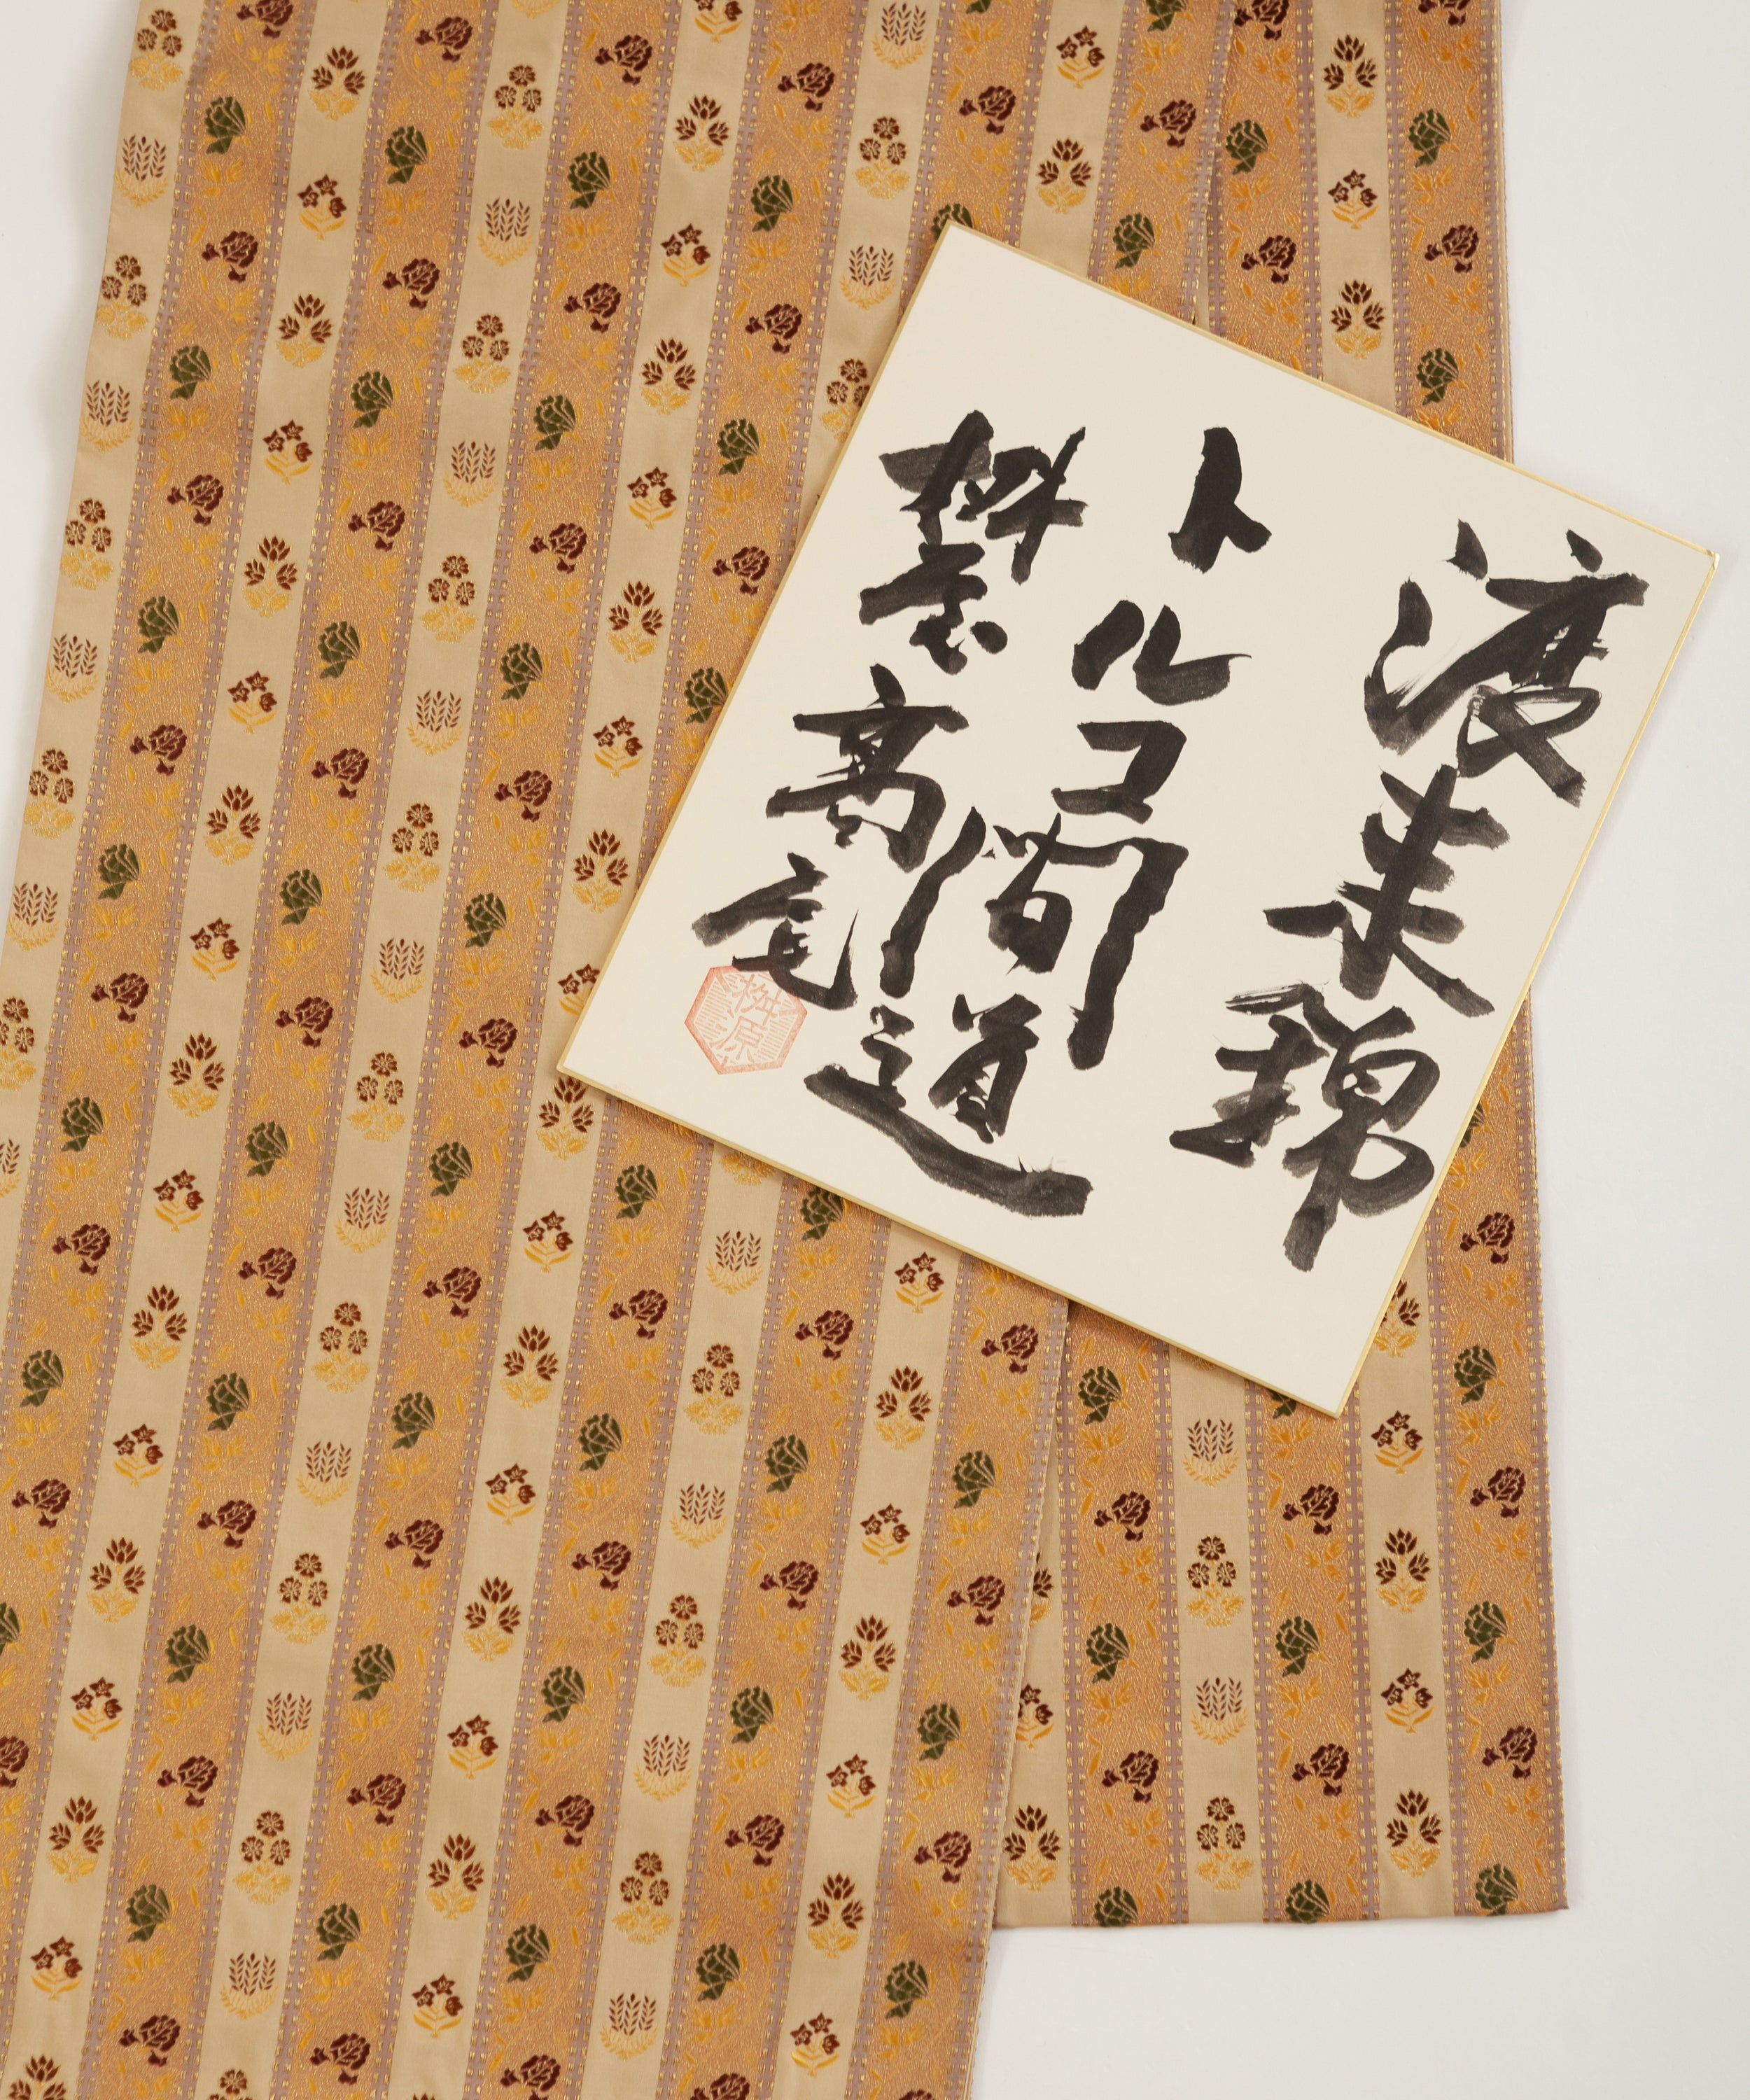 渡来錦
トルコ間道
桝屋高尾
桝原